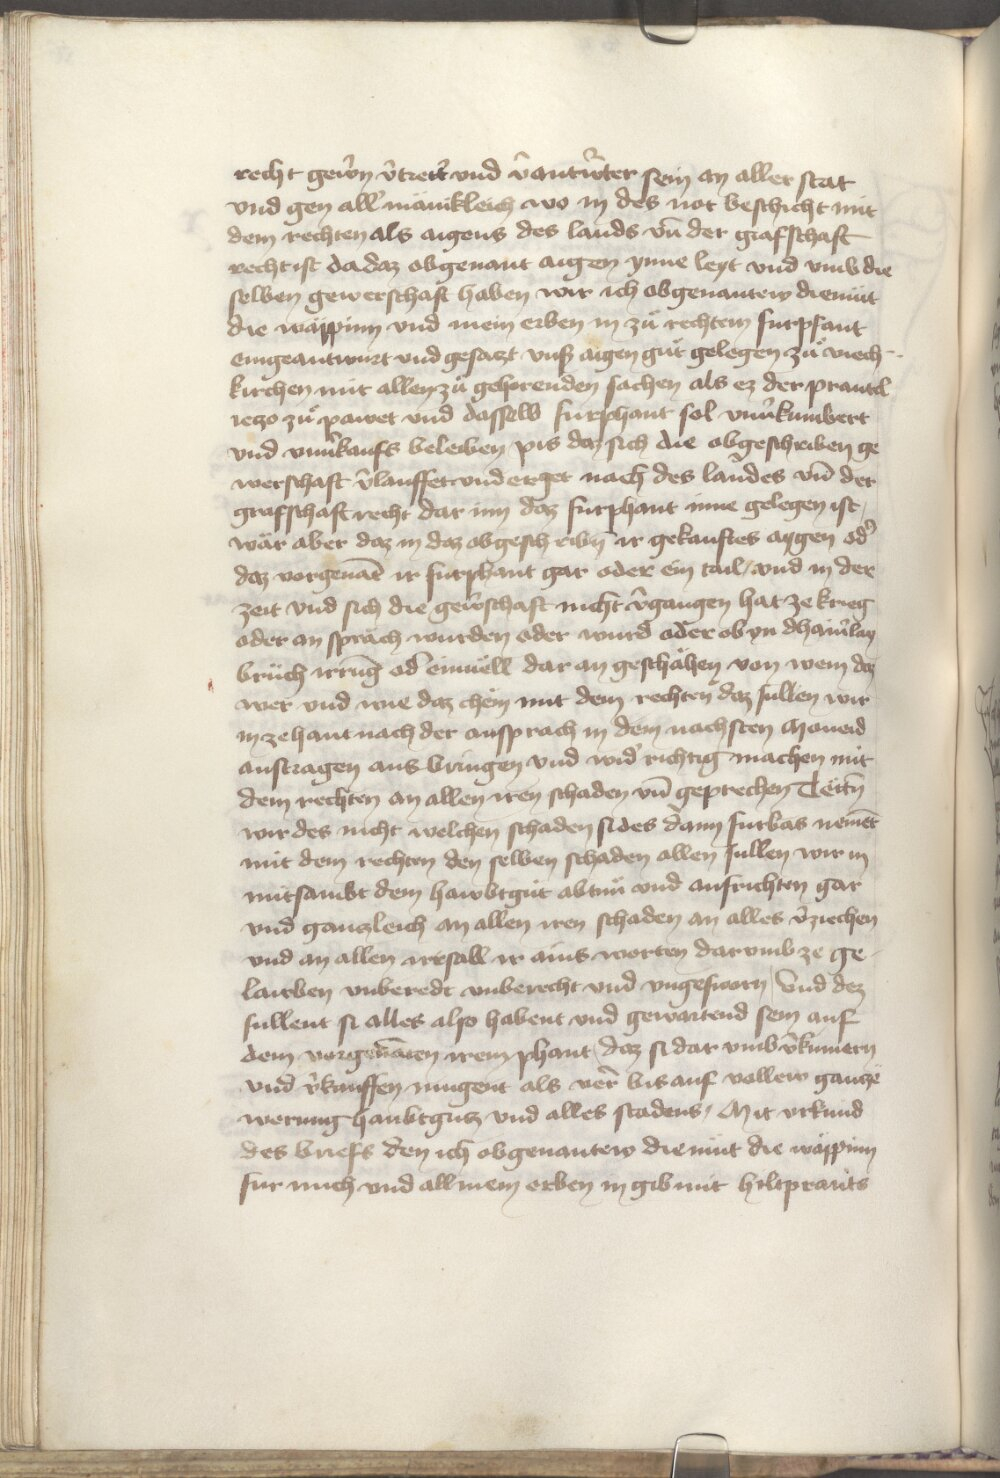 recht gew̄n v̄tret̄ vnd v̄antw̄ter sein an aller stat
vnd gen all mänikleich wo in des not beschicht mit
dem rechten als aigens des lands vn̄ der grafschaft
recht ist da daz obgenant aigen ynne leyt vnd vmb die
selben gewerschaft haben wir ich obgenantew diemüt
die wäppinn vnd mein erben in zů rechtem furpfant
eingeantwurt vnd gesaczt vnß aigen gůt gelegen zů viech
kirchen mit allen zů gehorenden sachen als ez der prantel
ieczo zů pawet vnd dasselb furphant sol vnūkumbert
vnd vnūkaufft beleiben pis daz sich die obgeschriben ge
werschaft v̄lauffet vnd erget nach des landes vn̄ der
grafschaft recht dar inn daz furphant inne gelegen ist
wär aber daz in daz obgeschriben ir gekauftes aygen od̄
daz vorgenāt ir furphant gar oder ein tail / vnd in der
zeit vnd sich die gew̄schaft nicht v̄gangen hat ze krieg
oder an sprach wurden oder wurd oder ob yn dhainlay
brüch irrūg od̄ einuëll dar an geschähen von wem daz
wer vnd wie daz chëm mit dem rechten daz sullen wir
in ze hant nach der ansprach in dem nachsten Moneid
austragen aus bringen vnd wid̄ richtig machen mit
dem rechten an allen iren schaden vn̄ geprechen Tëtn̄
wir des nicht welchen schaden si des dann furbas nemēt
mit dem rechten den selben schaden allen sullen wir in
mitsambt dem hawbtgut abtun vnd aufrichten gar
vnd ganczleich an allen iren schaden an alles v̄ziechen
vnd an allen irrsall ir ains worten darumb ze ge
lauben vnberedt vnberecht vnd vngesworn / Vnd dez
sullent si alles also habent vnd gewartend sein auf
dem vorgenāten irem phant / daz si dar vmb v̄kumern
vnd v̄kauffen mugent als ver̄ bis auf vollew gancze
werung haubtgutz vnd alles scadens / Mit vrkund
des briefs den ich obgenantew diemüt die wäppinn
fur mich vnd all mein erben in gib mit hiltprants